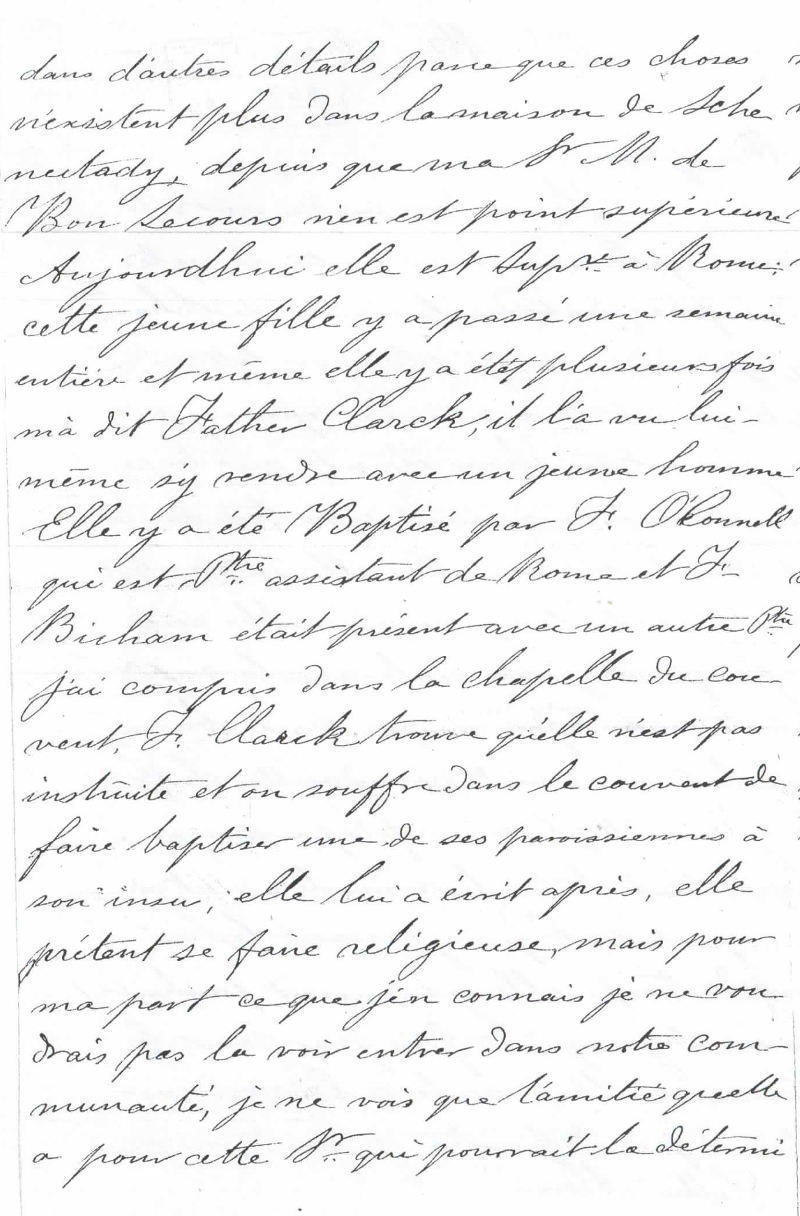 dans d'autres détails parce que ces choses
n'existent plus dans la maison de Sche
nectady, depuis que ma Sr M. de
Bon Secours n'en est point supérieure
Aujourdhui elle est Supre à Rome;
cette jeune fille y a passé une semaine
entière et même elle y a été plusieurs fois
m'a dit Father Clarck, il l'a vu lui-
même s'y rendre avec un jeune homme
Elle y a été Baptisé par F. O'Connell
qui est Ptre assistant de Rome et F-
Bicham était présent avec un autre Ptre
j'ai compris dans la chapelle du cou-
vent. F. Clarck trouve qu'elle n'est pas
instruite et on souffre dans le couvent de
faire baptiser une de ses paroissiennes à
son insu, elle lui a écrit après, elle
prétent se faire religieuse, mais pour
ma part ce que j'en connais je ne vou-
drais pas la voir entrer dans notre com-
munauté, je ne vois que l'amitié quelle
a pour cette Sr. qui pourrait la détermi